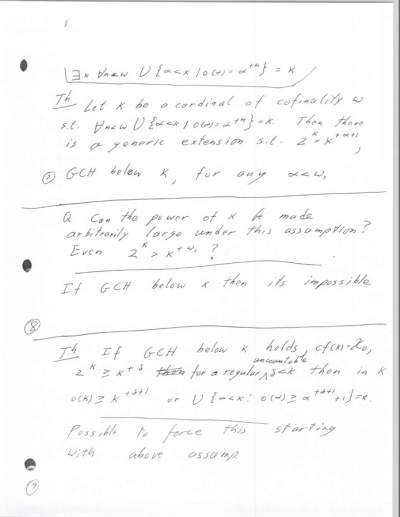 1
∃κ ∀n<ω ∪{α<κ | o(α)=α^{+n}} = κ
Th Let κ be a cardinal of cofinality ω
s.t. ∀n<ω ∪{α<κ | o(α)=α^{+n}}=κ. Then there
is a generic extension s.t. 2^κ = κ^{+α+1},
⑦ GCH below κ, for any α<ω₁
Q Can the power of κ be made
arbitrarily large under this assumption?
Even 2^κ > κ^{+ω₁}?
If GCH below κ then its impossible
⑧
Th If GCH below κ holds, cf(κ)=ℵ₀,
2^κ ≥ κ^{+δ} for a regular uncountable δ<κ then in K
o(κ) ≥ κ^{+δ+1} or ∪{α<κ: o(α) ≥ α^{+δ+1}+1}=κ.
Possible to force this starting
with above assump
⑨